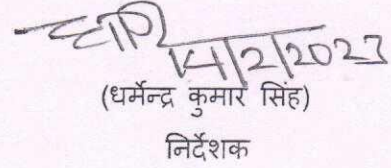 14/2/2023
(धर्मेन्द्र कुमार सिंह)
निर्देशक